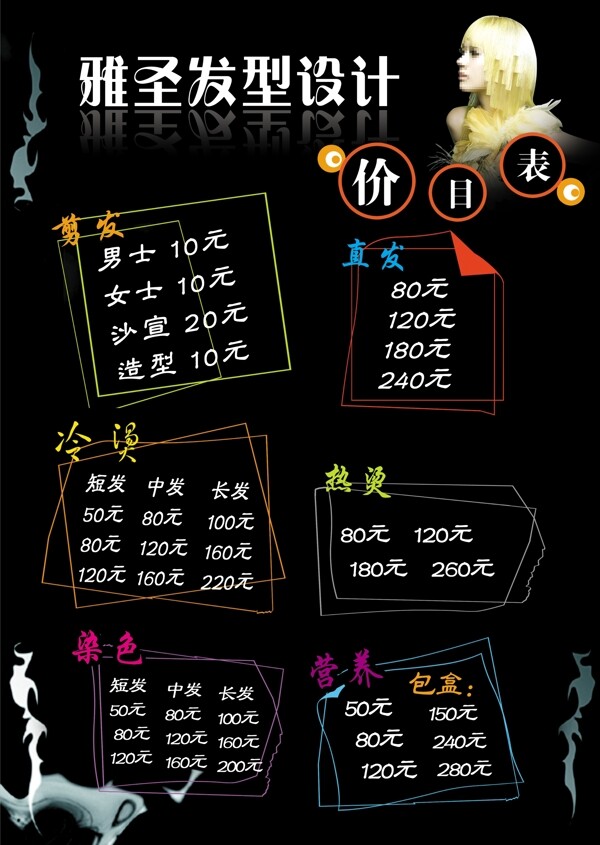 雅圣发型设计
价目表
剪发
男士 10元
女士 10元
沙宣 20元
造型 10元
直发
80元
120元
180元
240元
冷烫
短发 中发 长发
50元 80元 100元
80元 120元 160元
120元 160元 220元
热烫
80元 120元
180元 260元
染色
短发 中发 长发
50元 80元 100元
80元 120元 160元
120元 160元 200元
营养 包盒：
50元 150元
80元 240元
120元 280元